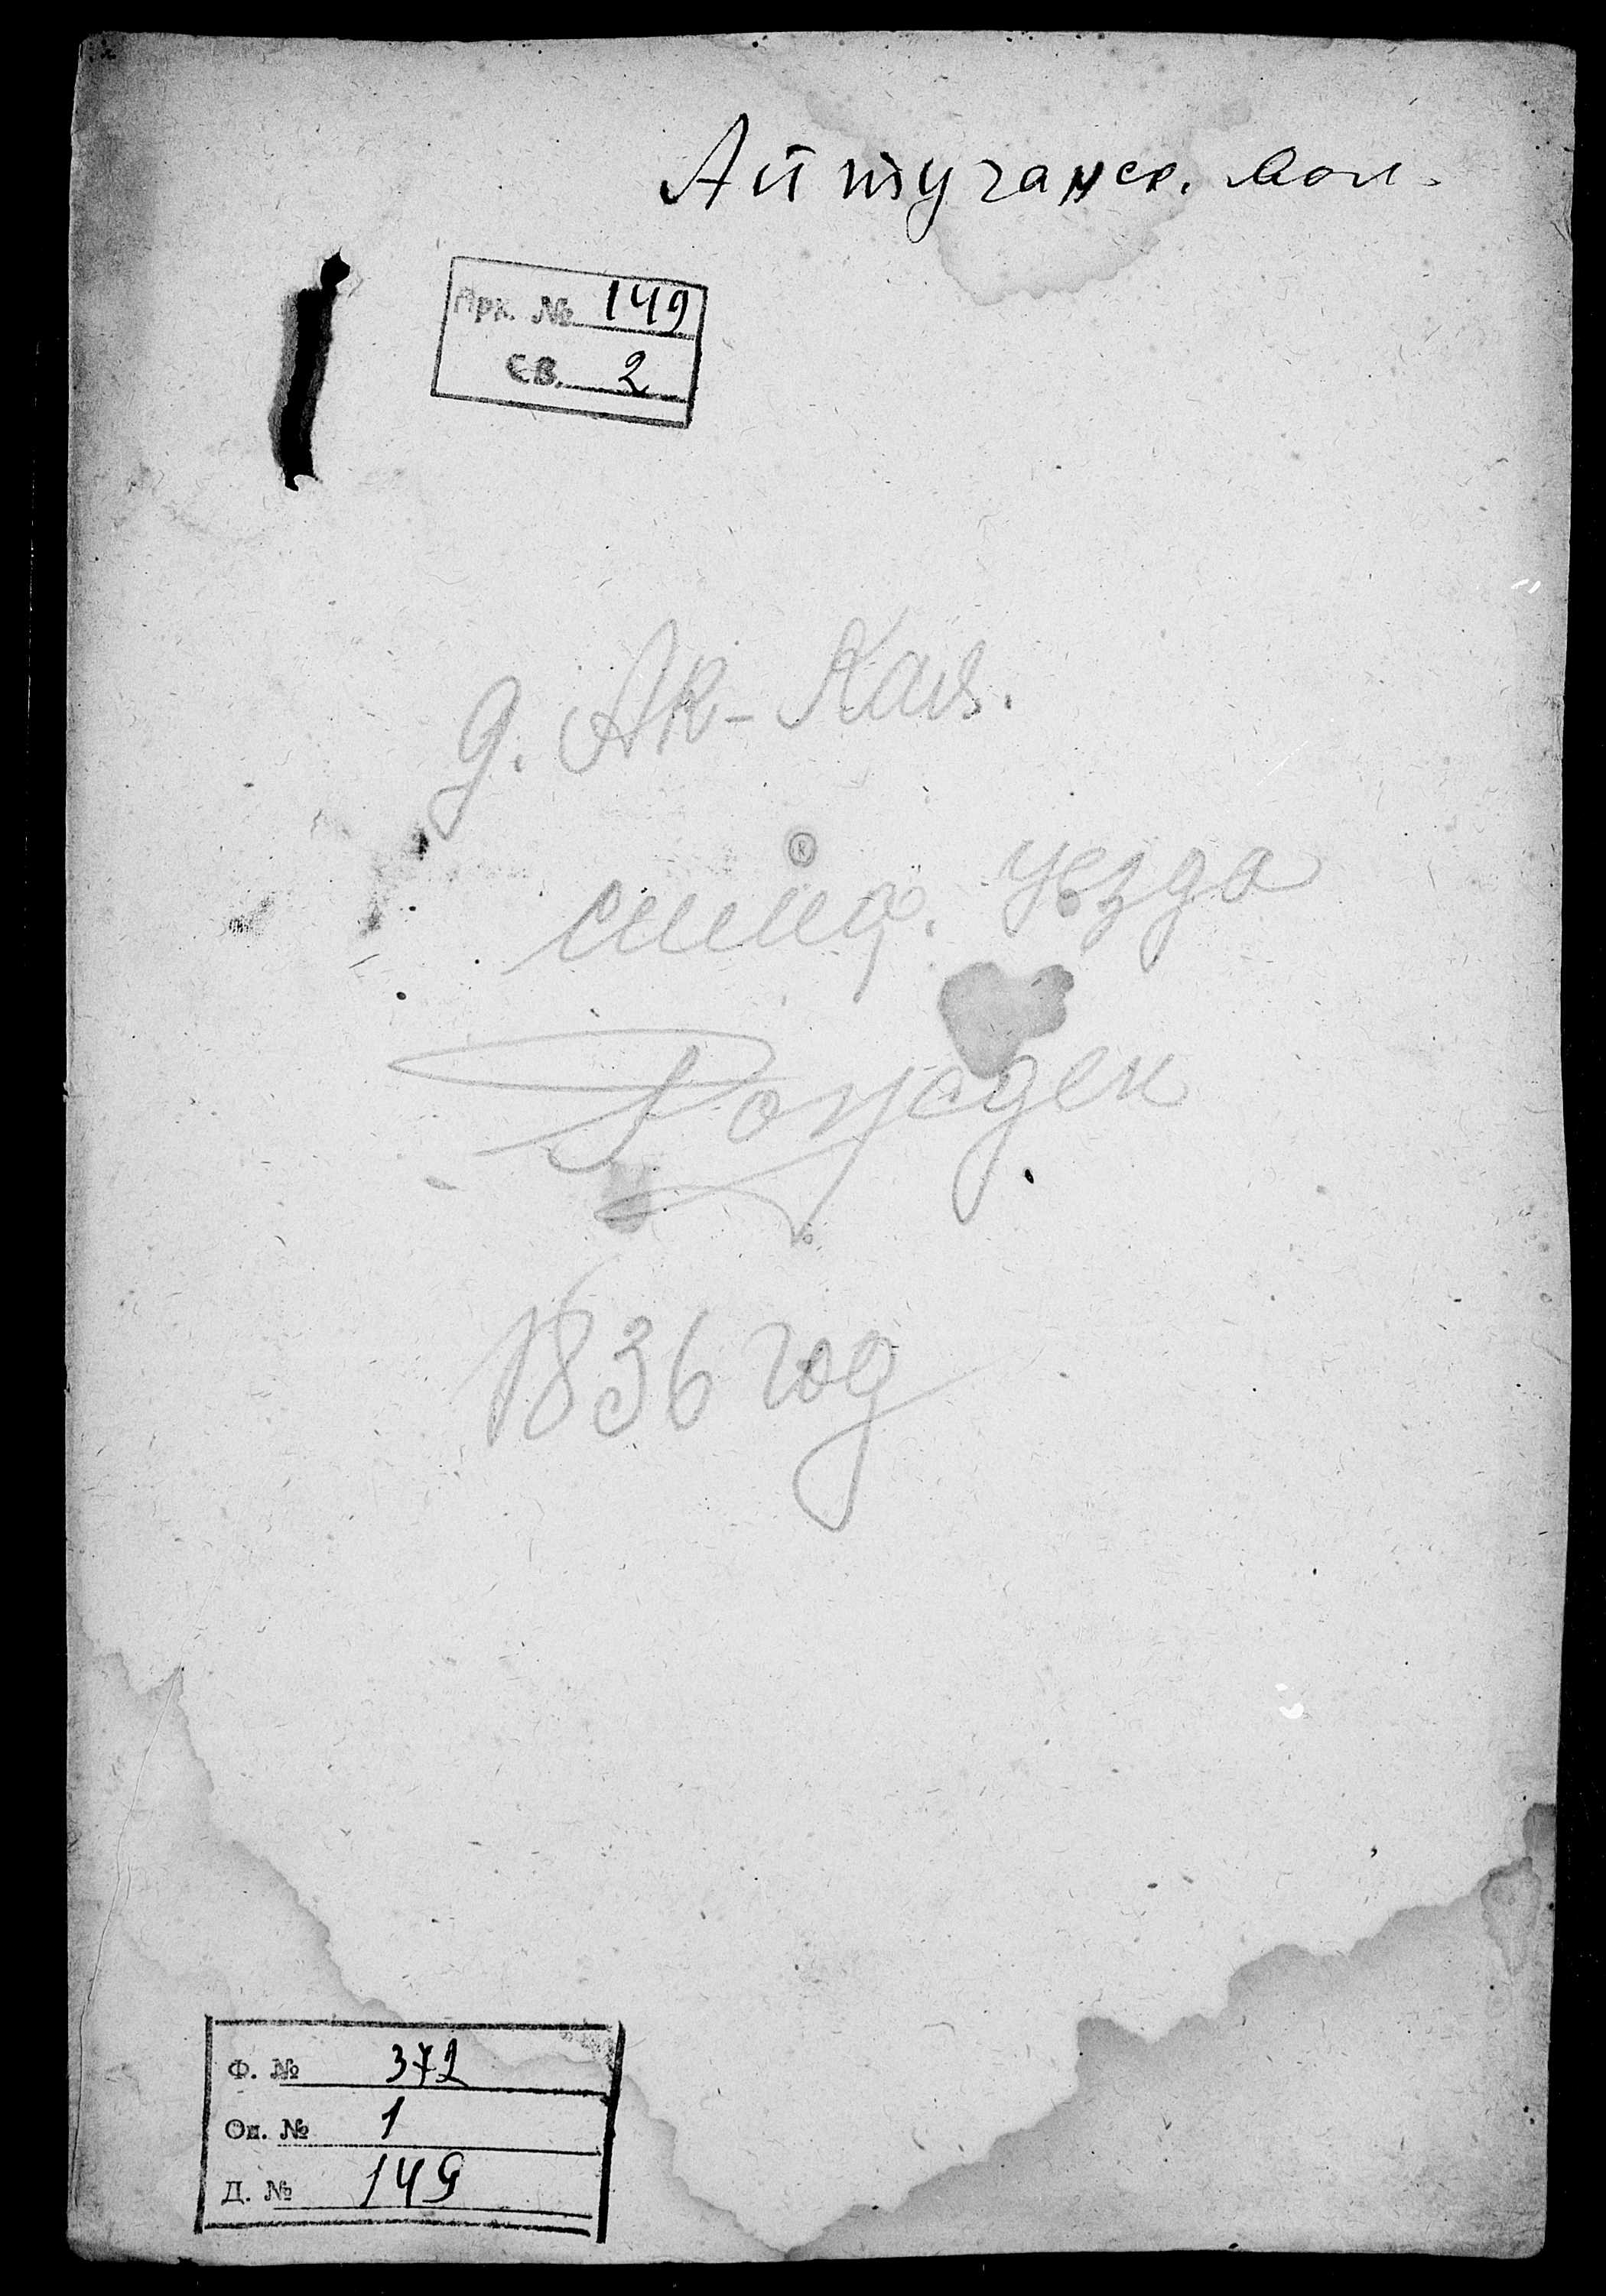 Айтуганск. вол.
Арх. № 149
св. 2
д. Ак-Кая.
симф. уезда
Рожден
1836 год
Ф. № 372
Оп. № 1
Д. № 149